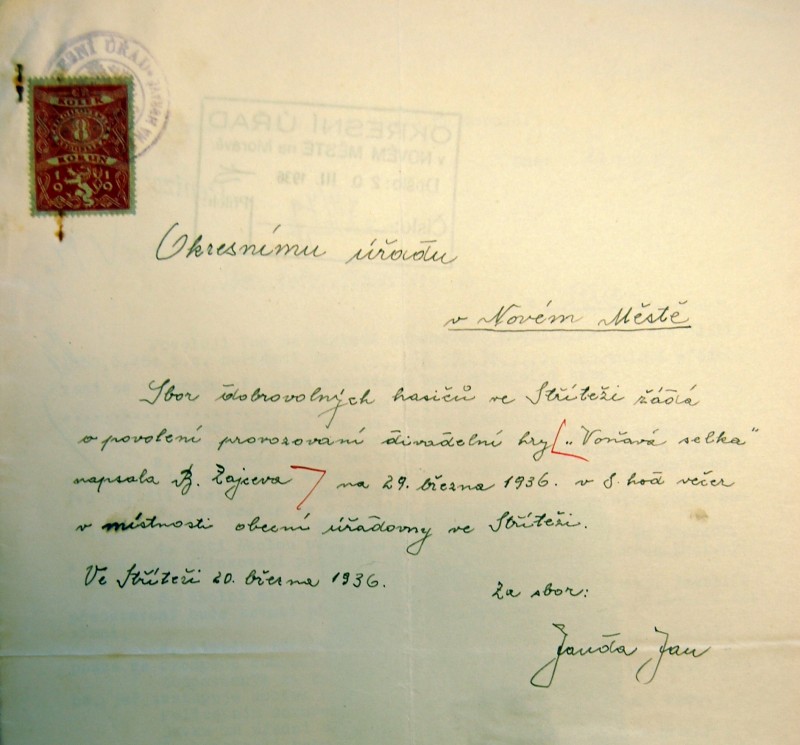 KOLEK
8
KORUN
1919
OKRESNÍ ÚŘAD
v NOVÉM MĚSTĚ na Moravě
Došlo: 20 III 1936
Číslo:
Okresnímu úřadu
v Novém Městě
Sbor dobrovolných hasičů ve Stříteži žádá
o povolení provozování divadelní hry „Voňavá selka“
napsala B. Zajceva na 29. března 1936. v 8. hod večer
v místnosti obecní úřadovny ve Stříteži.
Ve Stříteži 20. března 1936.
Za sbor:
Janda Jan